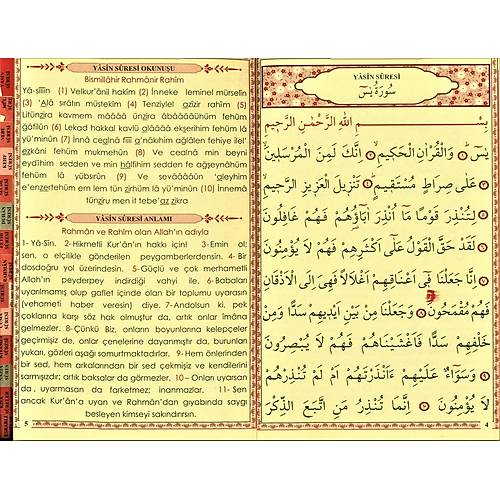 YÂSİN SÛRESİ OKUNUŞU
Bismillâhir Rahmânir Rahîm
Yâ-sîîîn (1) Velkur'ânil hakîm (2) İnneke leminel mürselîn
(3) 'Alâ sırâtın müstekîm (4) Tenziylel azîzir rahîm (5)
Litünzira kavmem
ğâfilûn (6) Lekad hakkal kavlü
lâ yü'minûn (7) İnnâ cealnâ fiii a'nâkihim ağlâlen fehiye ilel'
ezkâni fehüm mukmehûn (8) Ve cealnâ min beyni
eydîhim sedden ve min halfihim sedden fe ağşeynâhüm
fehüm lâ yübsırûn (9) Ve
lâ yü'minûn (10) İnnemâ
tünziru men it tebe'az zikra
YÂSİN SÛRESİ ANLAMI
Rahmân ve Rahîm olan Allah'ın adıyla
1- Yâ-Sîn. 2-Hikmetli Kur'ân'ın hakkı için! 3-Emin ol;
sen, o elçilikle gönderilen peygamberlerdensin. 4- Bir
dosdoğru yol üzerindesin. 5-Güçlü ve çok merhametli
Allah'ın peyderpey indirdiği vahyi ile. 6-Babaları
uyarılmamış olup gaflet içinde olan bir toplumu uyarasın
(vehameti haber veresin) diye. 7-Andolsun ki, pek
çoklarına karşı söz hak olmuştur da, artık onlar îmâna
gelmezler. 8-Çünkü Biz, onların boyunlarına kelepçeler
geçirmişiz de, onlar çenelerine dayanmıştır da, burunları
yukarı, gözleri aşağı somurtmaktadırlar. 9-Hem önlerinden
bir sed, hem arkalarından bir sed çekmişiz ve kendilerini
sarmışızdır; artık baksalar da görmezler. 10– Onları uyarsan
da, uyarmasan da farketmez; inanmazlar. 11- Sen
ancak Kur'ân'a uyan ve Rahmân'dan gıyabında saygı
besleyen kimseyi sakındırırsın.
5
YÂSİN SÛRESİ
سُورَةُ يٰسٓ
بِسْمِ اللّٰهِ الرَّحْمٰنِ الرَّحِيمِ
يٰسٓ ۝ وَالْقُرْاٰنِ الْحَكِيمِ ۝ اِنَّكَ لَمِنَ الْمُرْسَلِينَ ۝
عَلٰى صِرَاطٍ مُسْتَقِيمٍ ۝ تَنْزِيلَ الْعَزِيزِ الرَّحِيمِ ۝
لِتُنْذِرَ قَوْمًا مَٓا اُنْذِرَ اٰبَٓاؤُ۬هُمْ فَهُمْ غَافِلُونَ ۝
لَقَدْ حَقَّ الْقَوْلُ عَلٰٓى اَكْثَرِهِمْ فَهُمْ لَا يُؤْمِنُونَ ۝
اِنَّا جَعَلْنَا فِٓى اَعْنَاقِهِمْ اَغْلَالًا فَهِىَ اِلَى الْاَذْقَانِ
فَهُمْ مُقْمَحُونَ ۝ وَجَعَلْنَا مِنْ بَيْنِ اَيْدِيهِمْ سَدًّا وَمِنْ
خَلْفِهِمْ سَدًّا فَاَغْشَيْنَاهُمْ فَهُمْ لَا يُبْصِرُونَ ۝
وَسَوَٓاءٌ عَلَيْهِمْ ءَاَنْذَرْتَهُمْ اَمْ لَمْ تُنْذِرْهُمْ
لَا يُؤْمِنُونَ ۝ اِنَّمَا تُنْذِرُ مَنِ اتَّبَعَ الذِّكْرَ
4